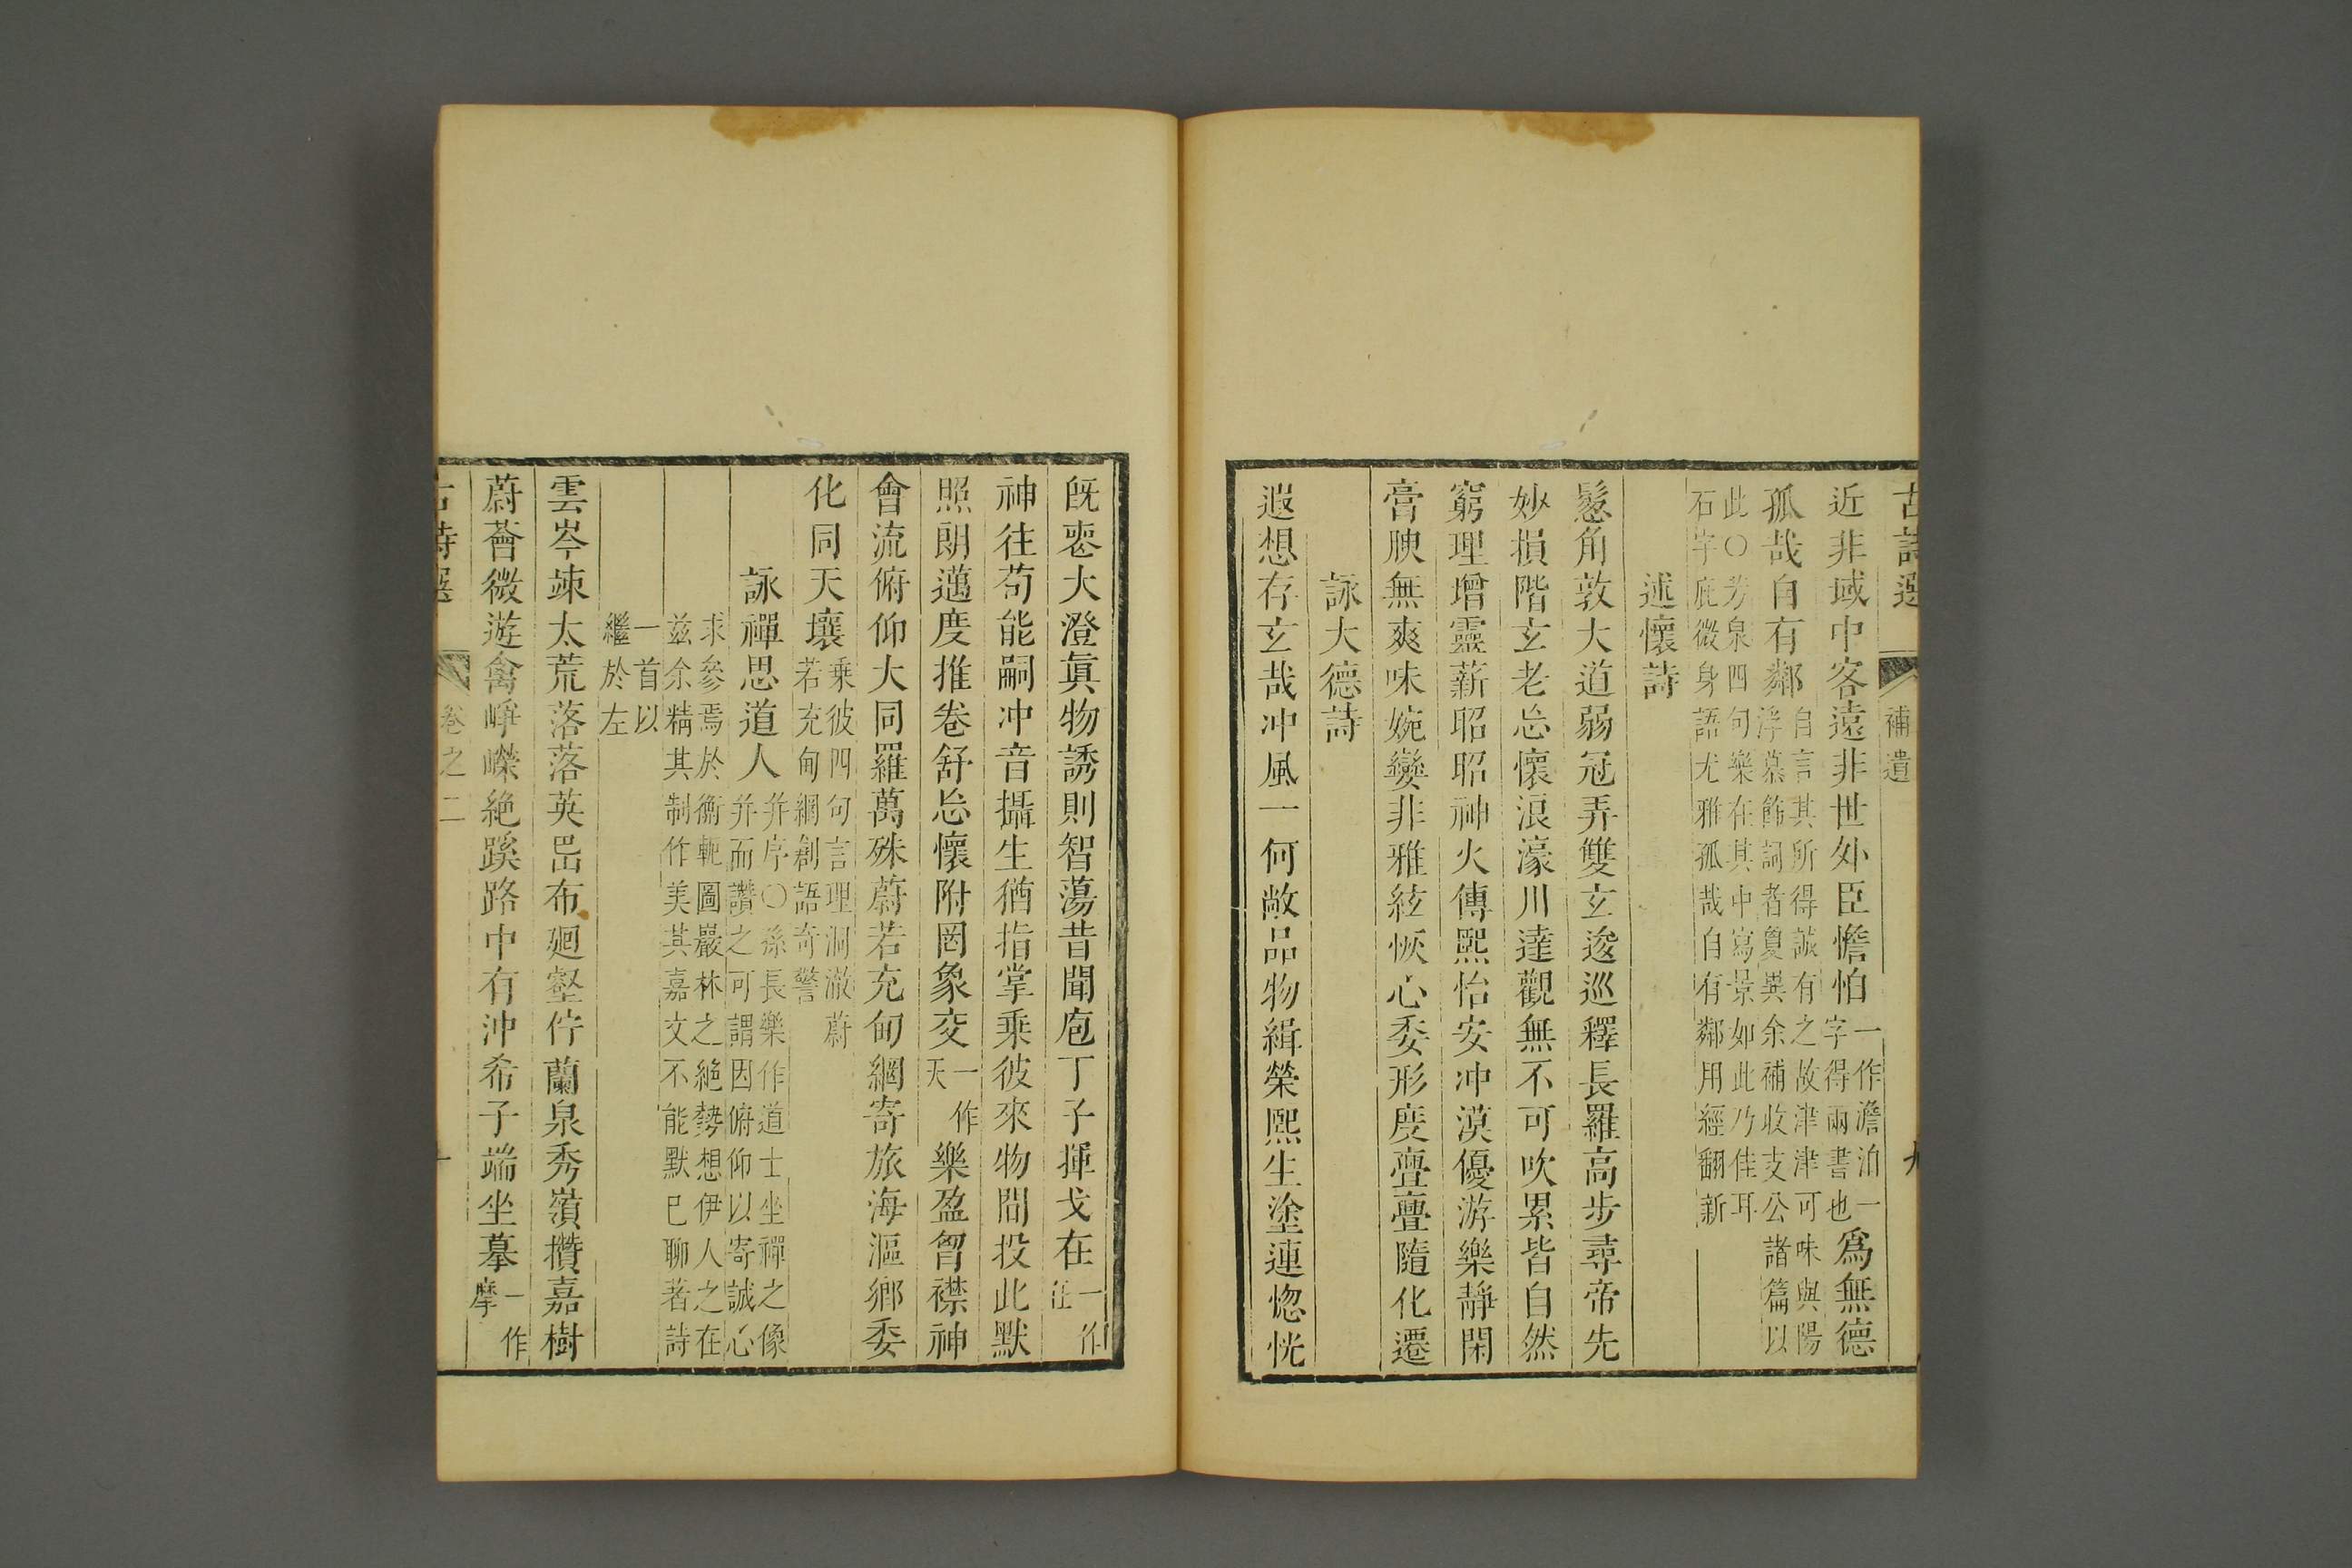 古詩選 補遺 九
近非域中客遠非世外臣憺怕一作澹泊一字得兩書也爲無德
孤哉自有鄰自言其所得誠有之故津津可味與陽浮慕飾詞者夐異余補收支公諸篇以
此〇芳泉四句樂在其中寫景如此乃佳耳石字庇微身語尤雅孤哉自有鄰用經翻新
述懷詩
髫角敦大道弱冠弄雙玄逡巡釋長羅高步尋帝先
妙損階玄老忘懷浪濠川達觀無不可吹累皆自然
窮理增靈薪昭昭神火傳熙怡安冲漠優游樂靜閑
膏腴無爽味婉孌非雅絃恢心委形度亹亹隨化遷
詠大德詩
遐想存玄哉冲風一何敞品物緝榮熙生塗連惚恍
旣喪大澄眞物誘則智蕩昔聞庖丁子揮戈在一作任
神往苟能嗣冲音攝生猶指掌乘彼來物間投此默
照朗邁度推卷舒忘懷附罔象交一作天樂盈胷襟神
會流俯仰大同羅萬殊蔚若充甸網寄旅海漚鄉委
化同天壤乘彼四句言理洞澈蔚若充甸網創語奇警
詠禪思道人并序〇孫長樂作道士坐禪之像并而讚之可謂因俯仰以寄誠心
求參焉於衡軛圖巖林之絶勢想伊人之在兹余精其制作美其嘉文不能默巳聊著詩
一首以繼於左
雲岑竦太荒落落英岊布廻壑佇蘭泉秀嶺攢嘉樹
蔚薈微遊禽崢嶸絶蹊路中有沖希子端坐摹一作摩
古詩選 卷之二